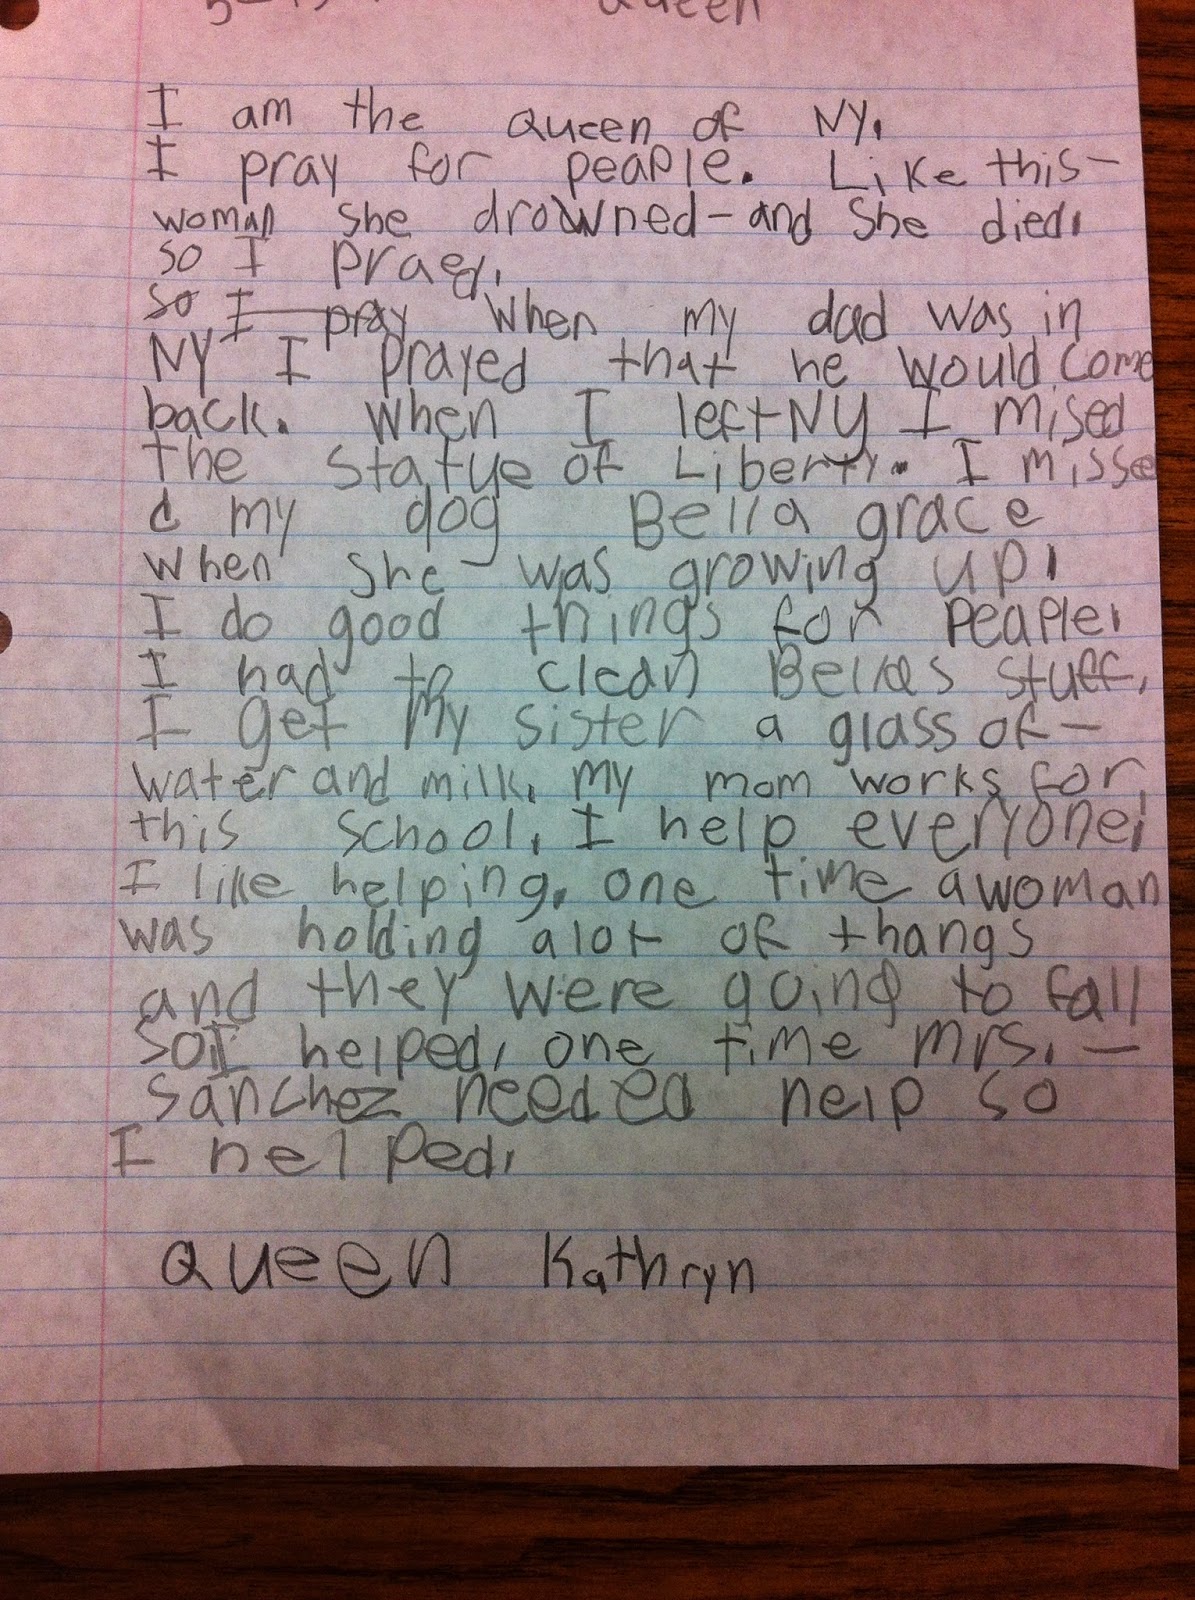 Queen
I am the Queen of NY.
I pray for peaple. Like this-
woman she drowned - and She died.
so I praed.
so I pray When my dad was in
NY I prayed that he would come
back. When I left NY I mised
the Statye of Liberty. I misse
d my dog Bella grace
when she was growing up.
I do good things for peaple.
I had to clean Bellas stuff.
I get my sister a glass of -
water and milk. my mom works for
this school. I help everyone.
I like helping. one time a woman
was holding alot of thangs
and they were going to fall
So I helped. one time mrs. -
Sanchez needed help so
I helped.
Queen Kathryn